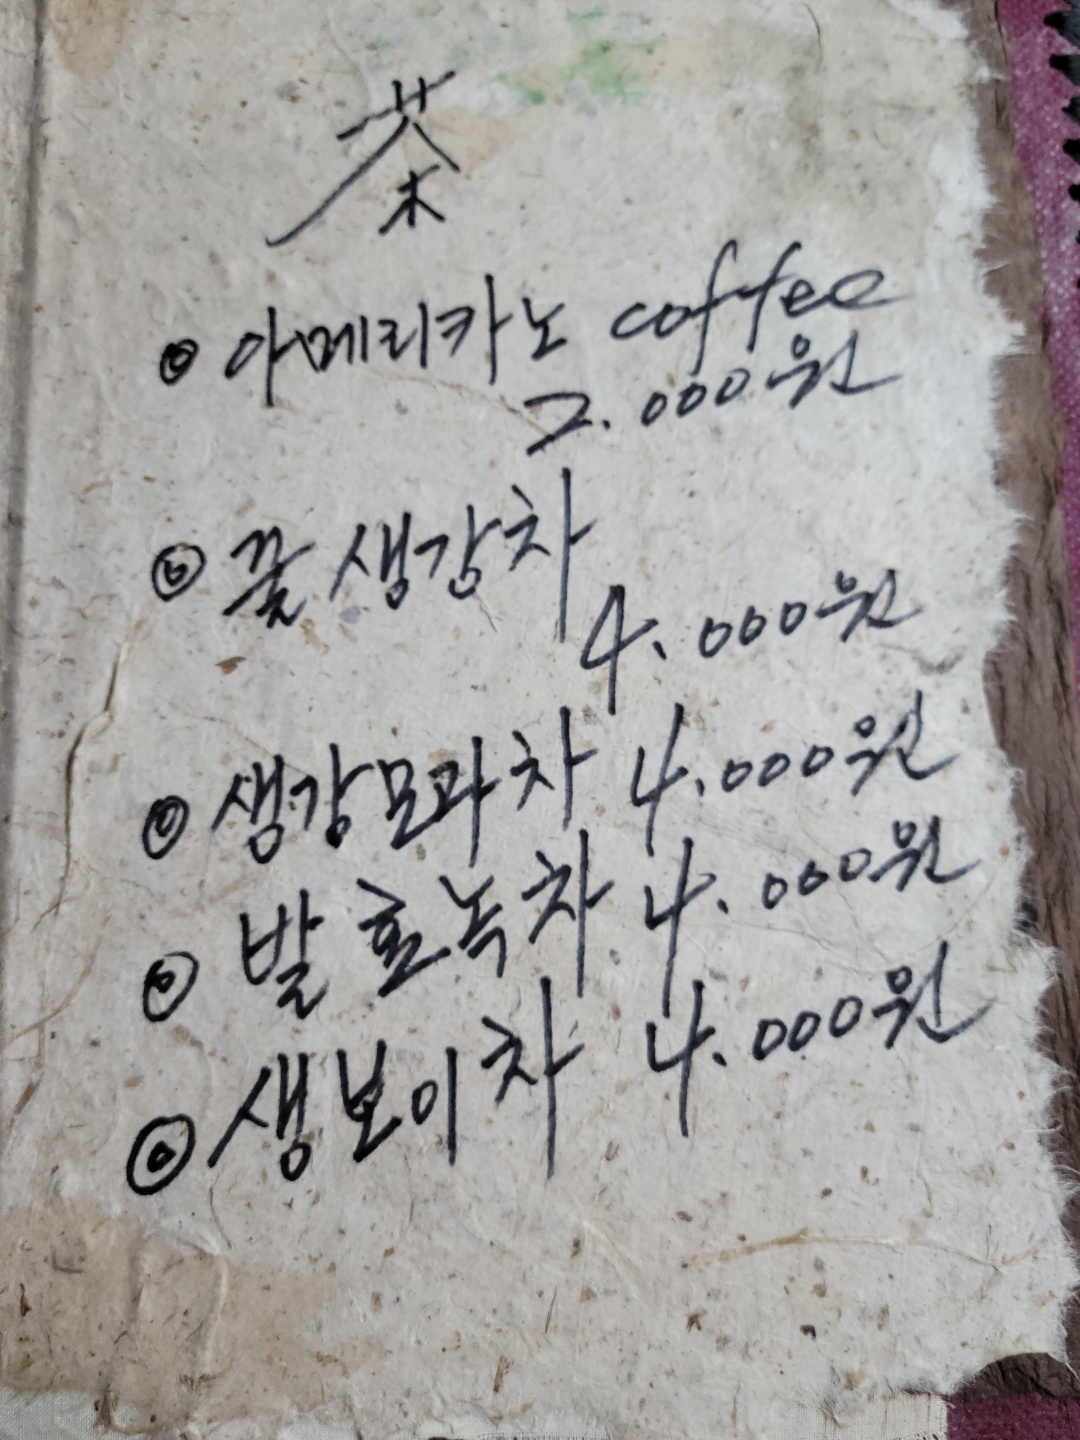 茶
◎ 아메리카노 coffee
2.000원
◎ 꿀생강차
4.000원
◎ 생강모과차 4.000원
◎ 발효녹차 4.000원
◎ 생보이차 4.000원